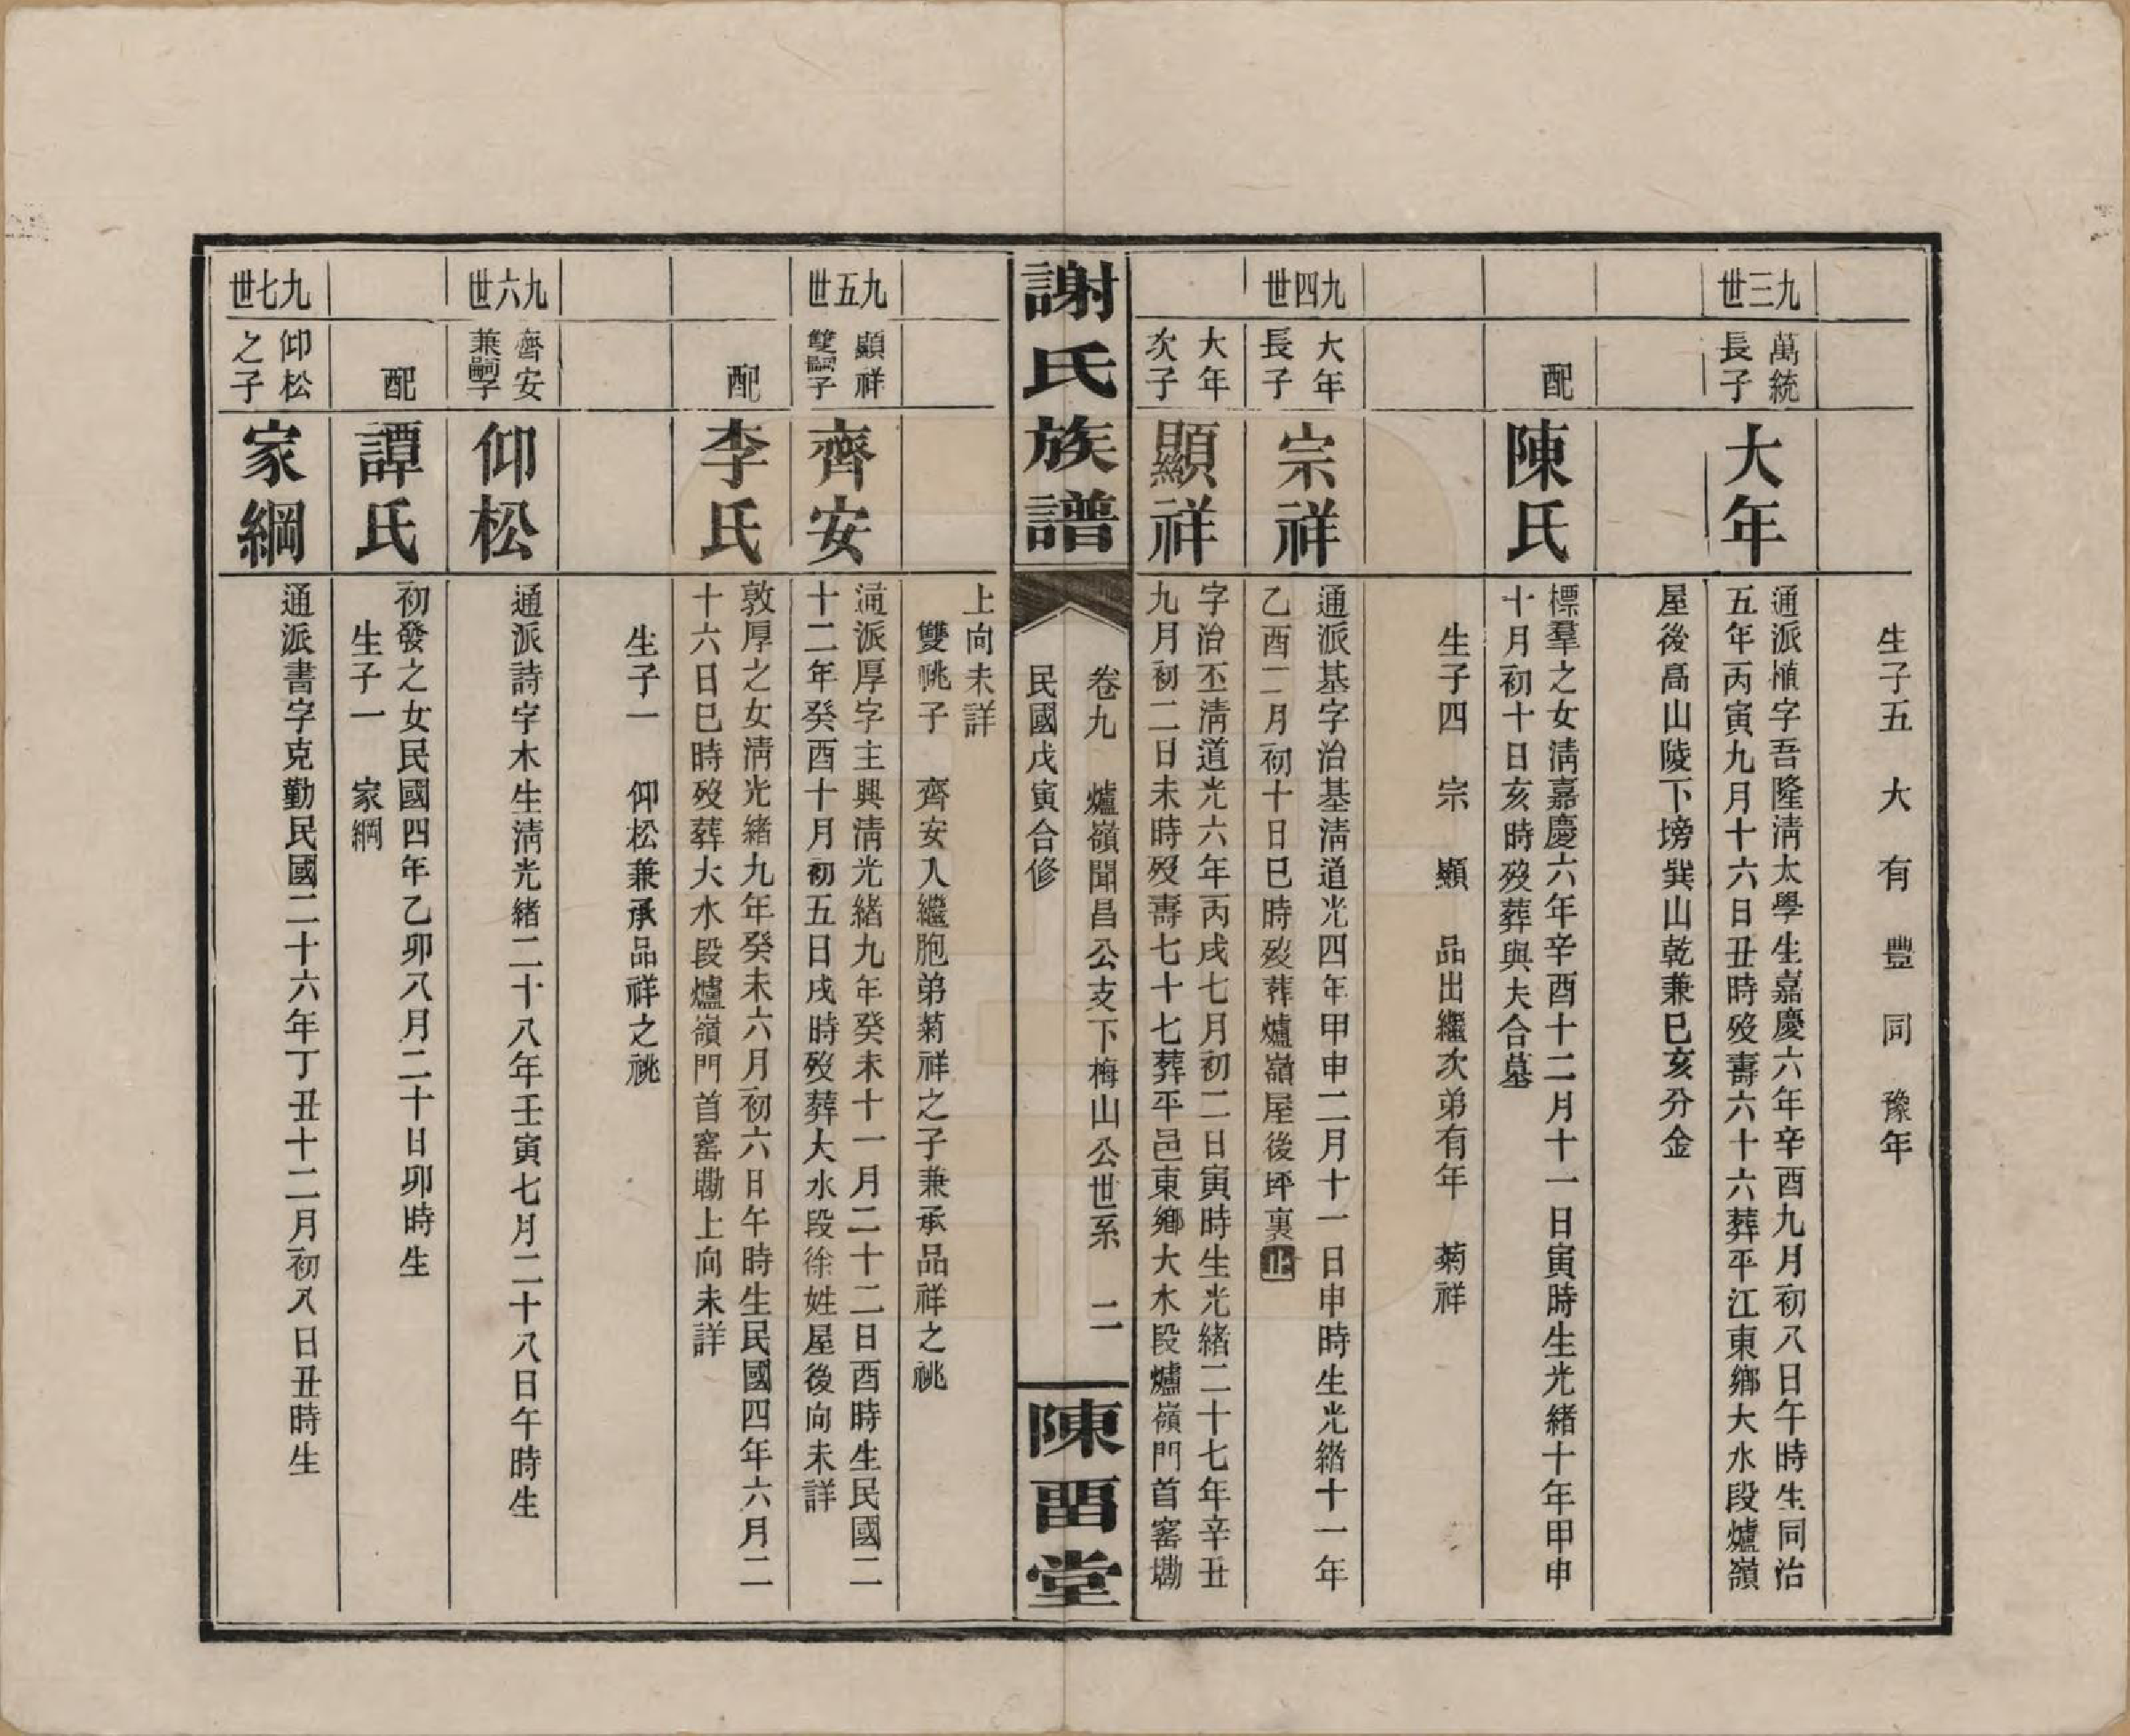 生子五　大　有　豐　同　豫年
九三世
萬統
長子
大年
通派楨字吾隆淸太學生嘉慶六年辛酉九月初八日午時生同治
五年丙寅九月十六日丑時歿壽六十六葬平江東鄉大水段爐嶺
屋後高山陵下塝巽山乾兼巳亥分金
配
陳氏
標羣之女淸嘉慶六年辛酉十二月十一日寅時生光緒十年甲申
十月初十日亥時歿葬與夫合墓
生子四　宗　顯　品出繼次弟有年　菊祥
九四世
大年
長子
宗祥
通派基字治基淸道光四年甲申二月十一日申時生光緒十一年
乙酉二月初十日巳時歿葬爐嶺屋後坪裏止
大年
次子
顯祥
字治丕淸道光六年丙戌七月初二日寅時生光緒二十七年辛丑
九月初二日未時歿壽七十七葬平邑東鄉大水段爐嶺門首窰墈
謝氏族譜
卷九　爐嶺聞昌公支下梅山公世系　二
民國戊寅合修
陳畱堂
上向未詳
雙祧子　齊安入繼胞弟菊祥之子兼承品祥之祧
九五世
顯祥
雙嗣子
齊安
通派厚字主興淸光緒九年癸未十一月二十二日酉時生民國二
十二年癸酉十月初五日戌時歿葬大水段徐姓屋後向未詳
配
李氏
敦厚之女淸光緒九年癸未六月初六日午時生民國四年六月二
十六日巳時歿葬大水段爐嶺門首窰墈上向未詳
生子一　仰松兼承品祥之祧
九六世
齊安
兼嗣子
仰松
通派詩字木生淸光緒二十八年壬寅七月二十八日午時生
配
譚氏
初發之女民國四年乙卯八月二十日卯時生
生子一　家綱
九七世
仰松
之子
家綱
通派書字克勤民國二十六年丁丑十二月初八日丑時生